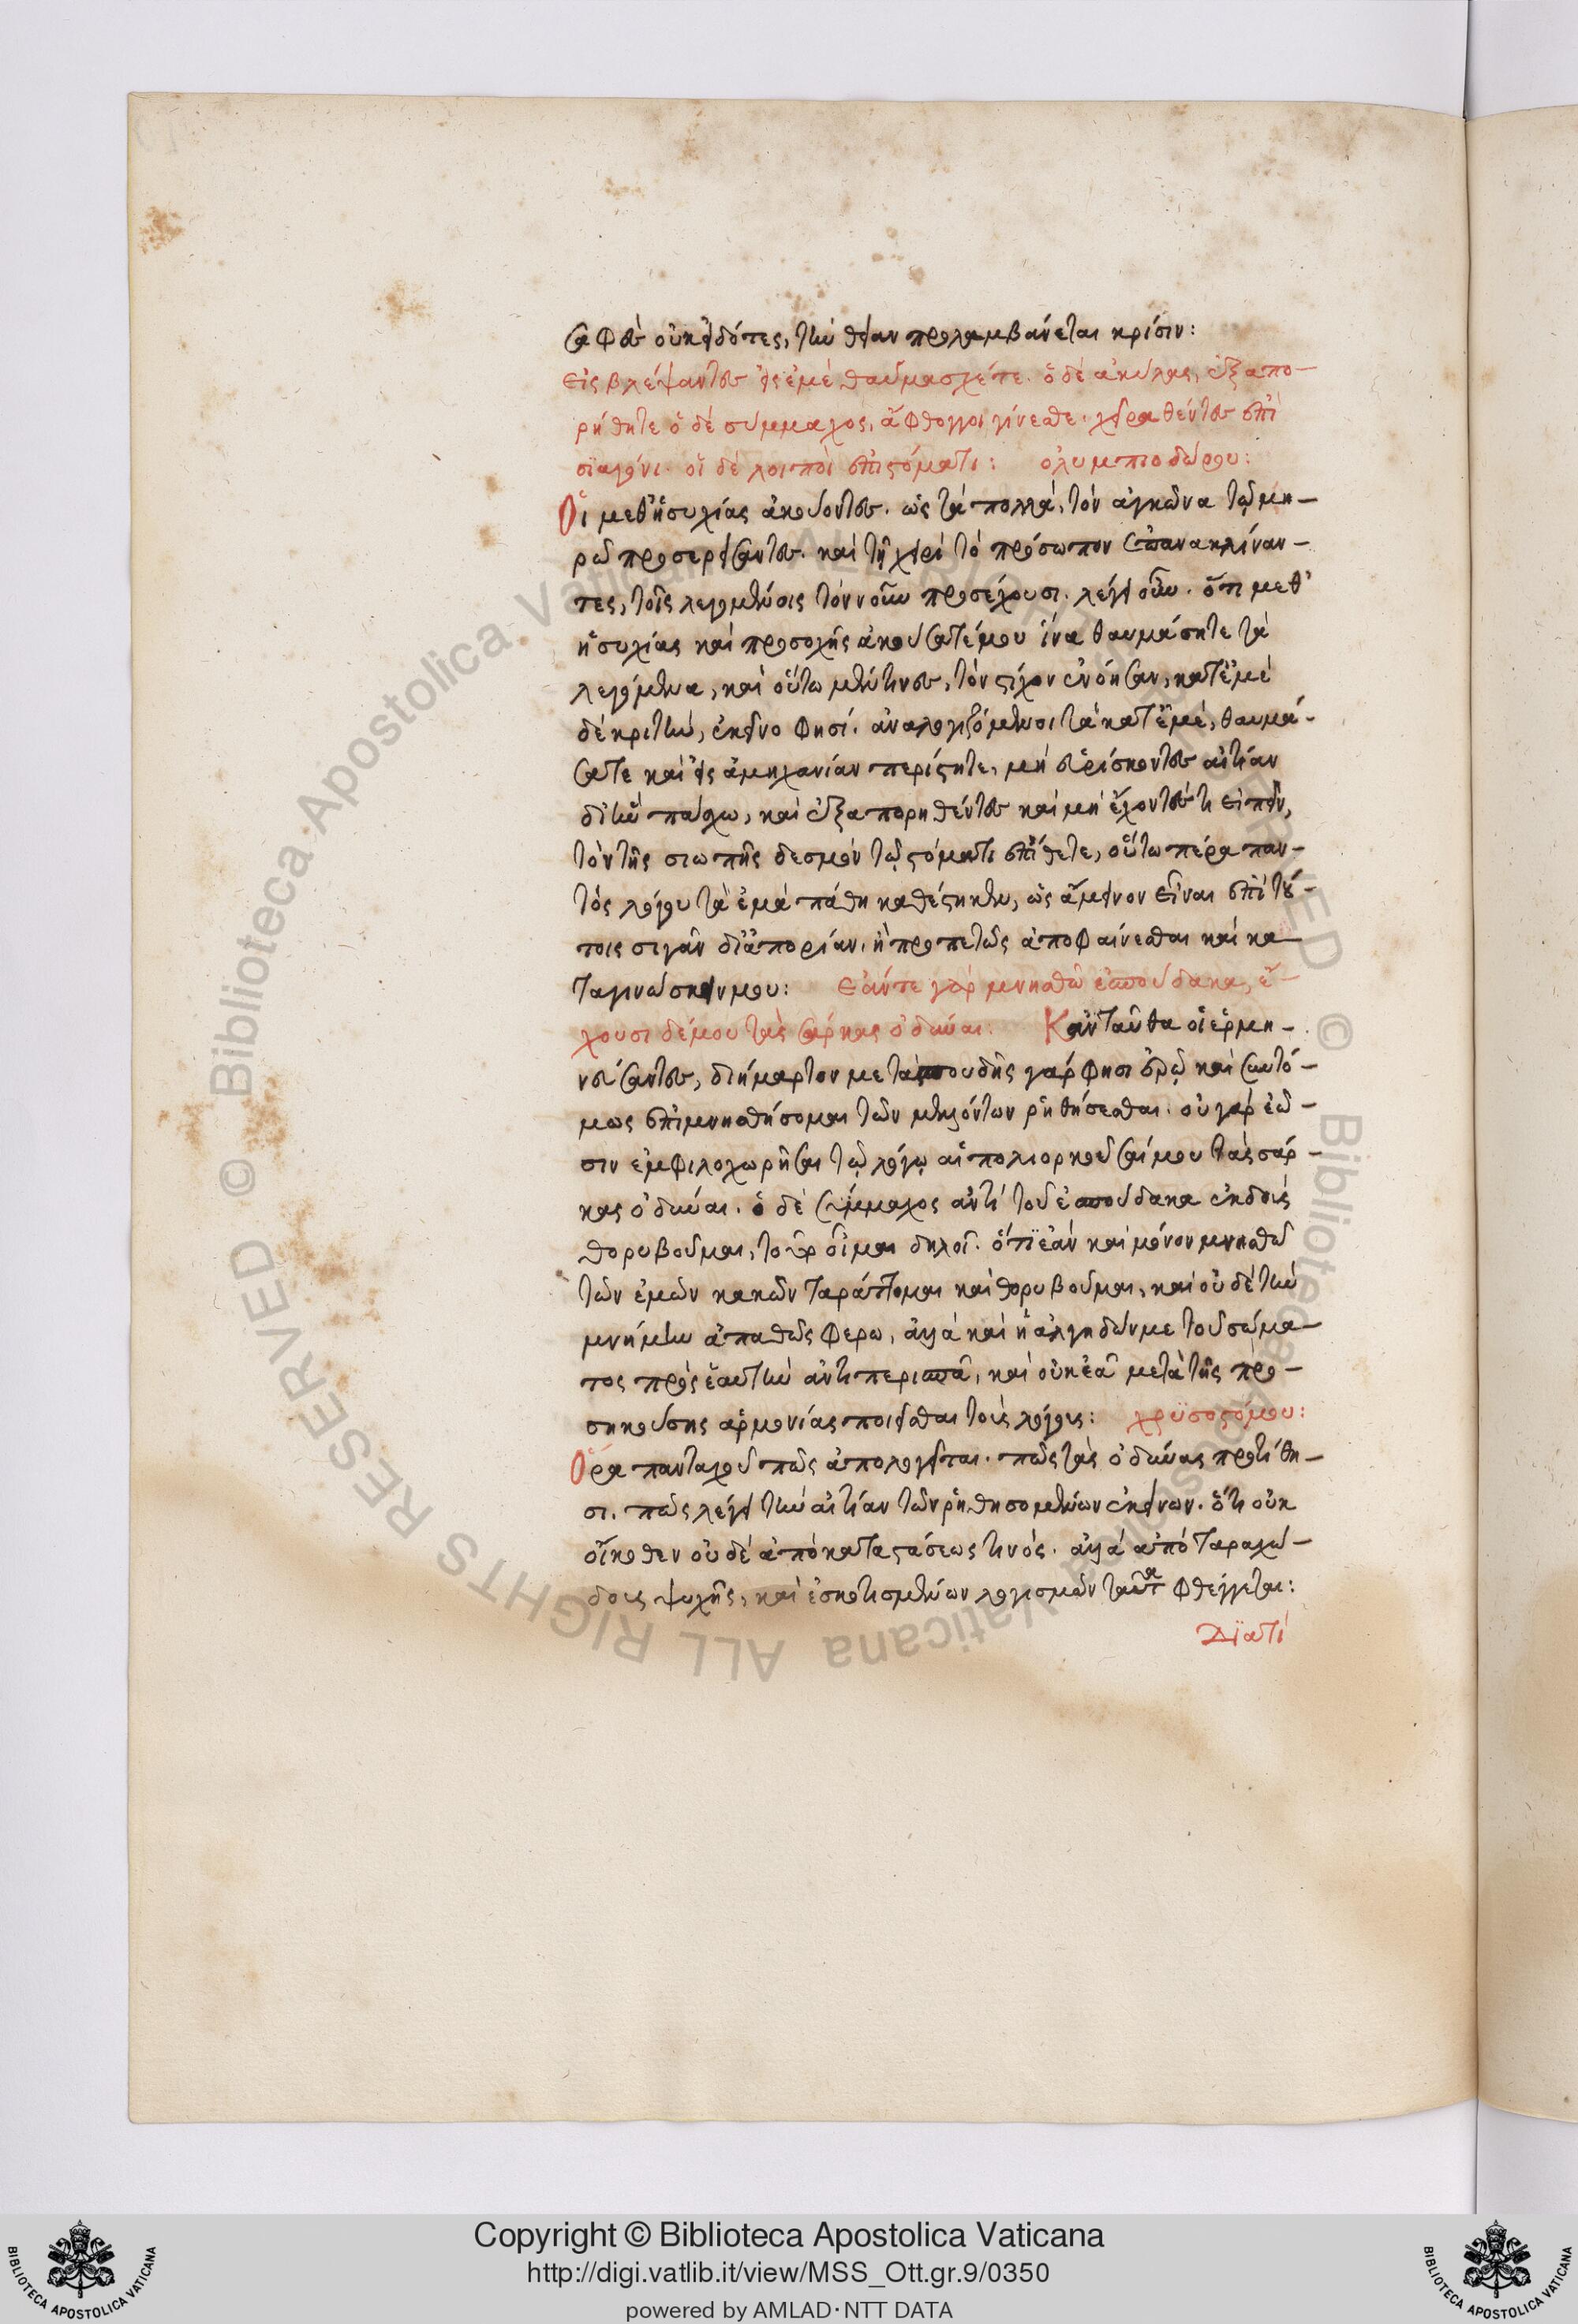 σαφὲς οὐκ εἰδότες, τὴν θείαν προλαμβάνεται κρίσιν:
εἰσβλέψαντες εἰς ἐμὲ θαυμασχέτε. ὁ δὲ ἀκύλας, ἐξαπο-
ρήθητε ὁ δὲ σύμμαχος, ἄφθογγοι γίνεσθε. χεῖρα θέντες ἐπὶ
σιαγόνι. οἱ δὲ λοιποὶ ἐπὶ στόματι: ὀλυμπιοδώρου:
Οἱ μεθ' ἡσυχίας ἀκούοντες. ὡς τὰ πολλὰ, τὸν ἀγκῶνα τῷ μη-
ρῷ προσερείσαντες. καὶ τῇ χειρὶ τὸ πρόσωπον ἐπανακλίναν-
τες, τοῖς λεγομένοις τὸν νοῦν προσέχουσι. λέγει οὖν. ὅτι μεθ'
ἡσυχίας καὶ προσοχῆς ἀκούσατέ μου ἵνα θαυμάσητε τὰ
λεγόμενα, καὶ οὕτω μέν τινες, τὸν στίχον ἐνόησαν, κατ' ἐμὲ
δὲ κριτὴν, ἐκεῖνο φησί. ἀναλογιζόμενοι τὰ κατ' ἐμὲ, θαυμά-
σατε καὶ εἰς ἀμηχανίαν περίστητε, μὴ εὑρίσκοντες αἰτίαν
δι' ἣν πάσχω, καὶ ἐξαπορηθέντες καὶ μὴ ἔχοντές τι εἰπεῖν,
τὸν τῆς σιωπῆς δεσμὸν τῷ στόματι ἐπίθετε, οὕτω πέρα παν-
τὸς λόγου τὰ ἐμὰ πάθη καθέστηκεν, ὡς ἄμεινον εἶναι ἐπὶ τού-
τοις σιγᾶν δι' ἀπορίαν. ἢ προπετῶς ἀποφαίνεσθαι καὶ κα-
ταγινώσκειν μου: ἐάν τε γὰρ μνησθῶ ἐσπούδακα, ἔ-
χουσι δέ μου τὰς σάρκας ὀδύναι. Κἀνταῦθα οἱ ἑρμη-
νεύσαντες, διήμαρτον μετὰ σπουδῆς γὰρ φησι ἐρῶ καὶ συντό-
μως ἐπιμνησθήσομαι τῶν μελλόντων ῥηθήσεσθαι. οὐ γὰρ ἐῶ-
σιν ἐμφιλοχωρῆσαι τῷ λόγῳ αἱ πολιορκοῦσαί μου τὰς σάρ-
κας ὀδύναι. ὁ δὲ σύμμαχος ἀντὶ τοῦ ἐσπούδακα ἐκδοὺς
θορυβοῦμαι, τοῦτο οἶμαι δηλοῖ. ὅτι ἐὰν καὶ μόνον μνησθῶ
τῶν ἐμῶν κακῶν ταράττομαι καὶ θορυβοῦμαι, καὶ οὐδὲ τὴν
μνήμην ἀπαθῶς φερω, ἀλλὰ καὶ ἡ ἀλγηδών με τοῦ σώμα-
τος πρὸς ἑαυτὴν ἀντιπερισπᾶ, καὶ οὐκ ἐᾶ μετὰ τῆς προ-
σηκούσης ἁρμονίας ποιεῖσθαι τοὺς λόγους: χρυσοστόμου:
Ὅρα πανταχοῦ πῶς ἀπολογεῖται. πῶς τὰς ὀδύνας προτίθη-
σι. πῶς λέγει τὴν αἰτίαν τῶν ῥηθησομένων ἐκείνων. ὅτι οὐκ
οἴκοθεν οὐδὲ ἀπὸ καταστάσεως τινὸς. ἀλλὰ ἀπὸ ταραχώ-
δους ψυχῆς, καὶ ἐσκοτισμένων λογισμῶν ταῦτα φθέγγεται:
Διατί
Copyright © Biblioteca Apostolica Vaticana
http://digi.vatlib.it/view/MSS_Ott.gr.9/0350
powered by AMLAD·NTT DATA